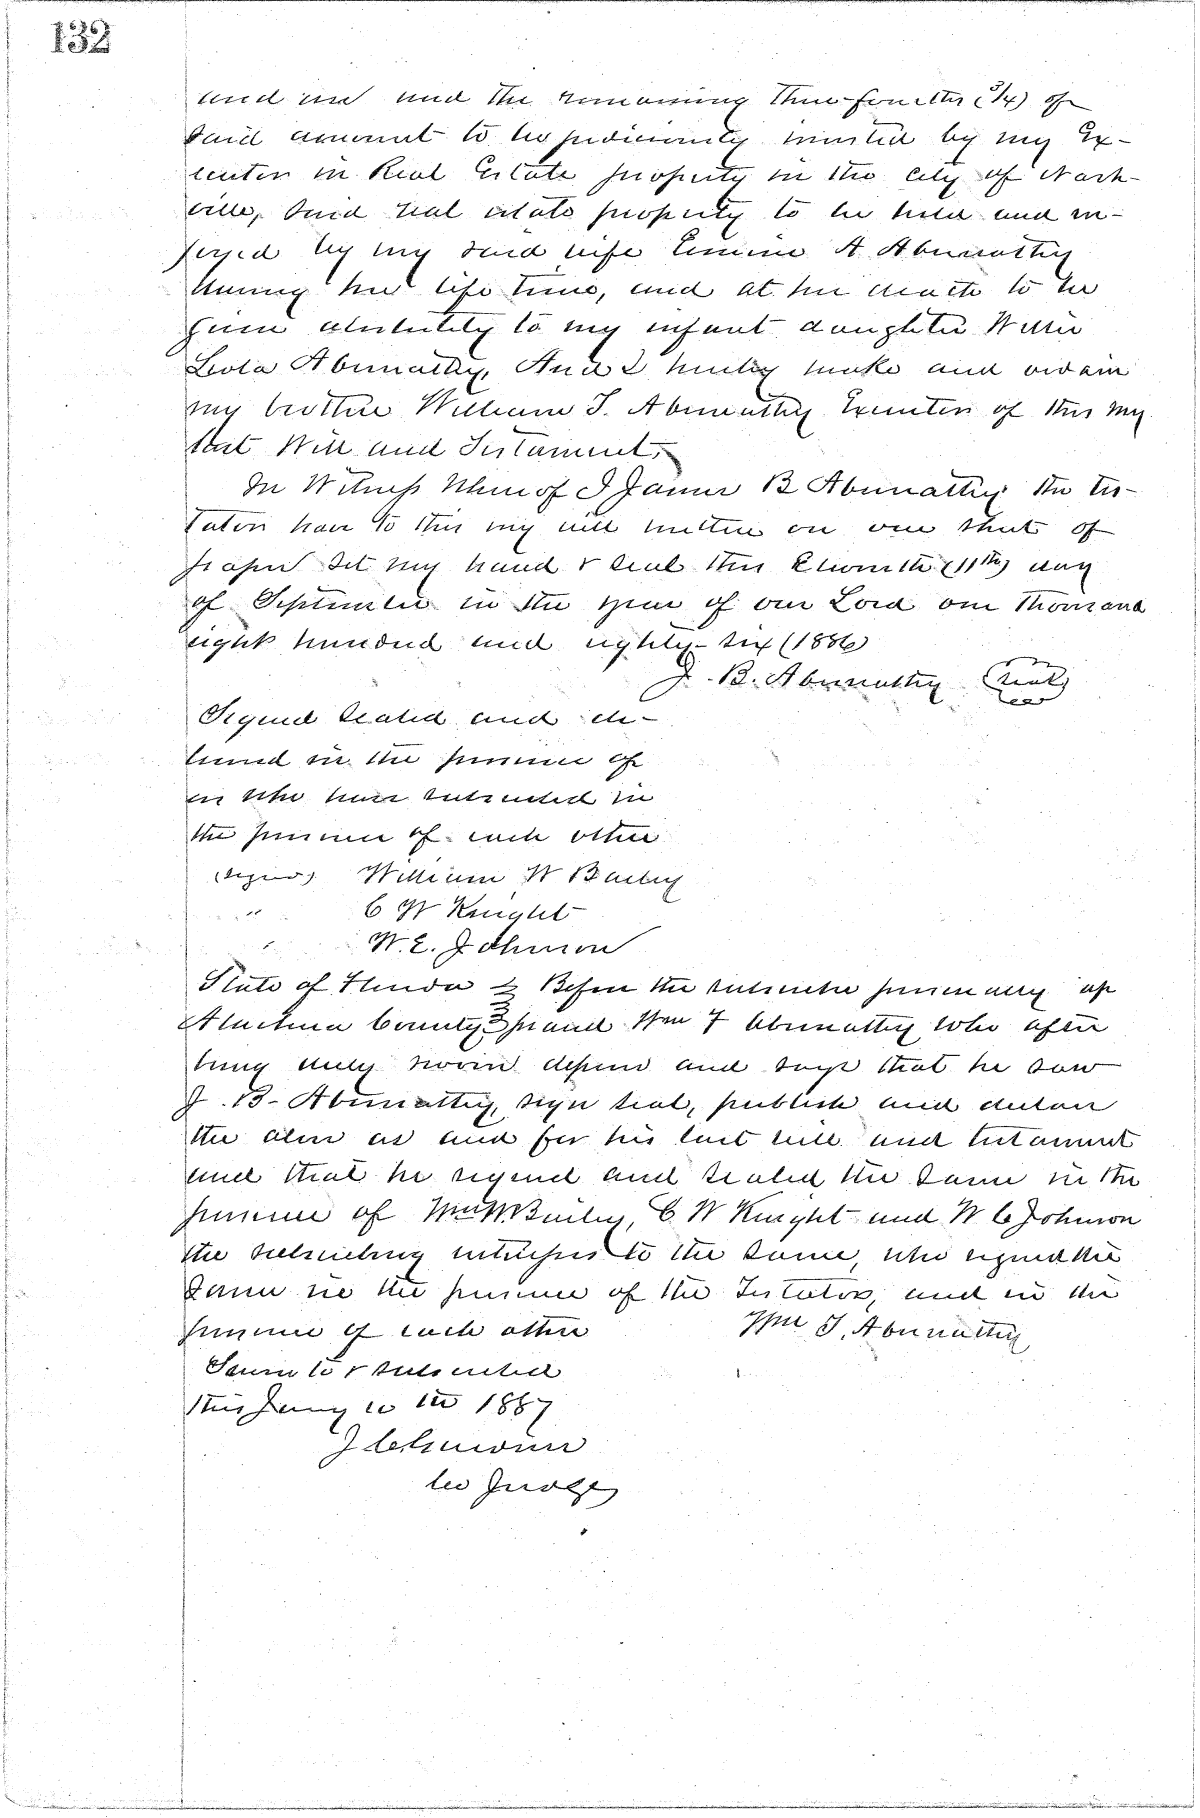 132
and use and the remaining three fourths (3/4) of
said amount to be judiciously invested by my Ex-
ecutor in Real Estate property in the city of Nash-
ville, said real estate property to be held and en-
joyed by my said wife Emma A Abernathy
during her life time, and at her death to be
given absolutely to my infant daughter Willie
Leola Abernathy, And I hereby make and ordain
my brother William T. Abernathy Executor of this my
last Will and Testament,
In Witness Whereof I James B Abernathy the tes-
tator have to this my will written on one sheet of
paper set my hand & seal this Eleventh (11th) day
of September in the year of our Lord one thousand
eight hundred and eighty-six (1886)
J. B. Abernathy (Seal)
Signed sealed and de-
livered in the presence of
us who have subscribed in
the presence of each other
(signed) William W Bailey
" C W Knight
" W. E. Johnson
State of Florida } Before the subscriber personally ap
Alachua County } peared Wm T Abernathy who after
being duly sworn deposes and says that he saw
J. B. Abernathy, sign seal, publish and declare
the above as and for his last will and testament
and that he signed and sealed the same in the
presence of Wm W Bailey, C W Knight and W C Johnson
the subscribing witnesses to the same, who signed the
same in the presence of the Testator, and in the
presence of each other Wm T. Abernathy
Sworn to & subscribed
this Jany 10th 1887
J C
Co Judge